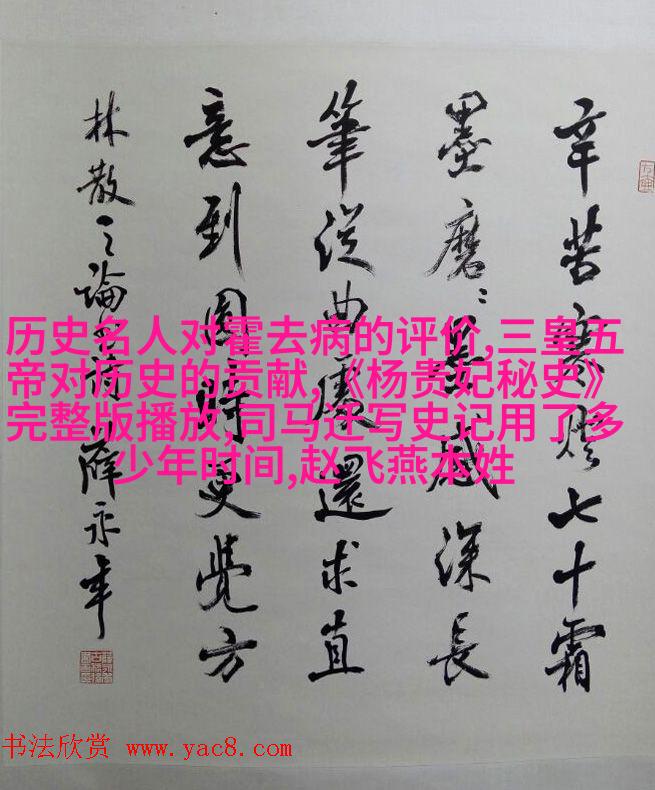 辛苦寒燈七十霜
墨磨〻墨感深長
筆從曲處還求直
意到圓時更覺方
林散之論書詩 薛永年
历史名人对霍去病的评价,三皇五
帝对历史的贡献,《杨贵妃秘史》
完整版播放,司马迁写史记用了多
少年时间,赵飞燕本姓
书法欣赏 www.yac8.com